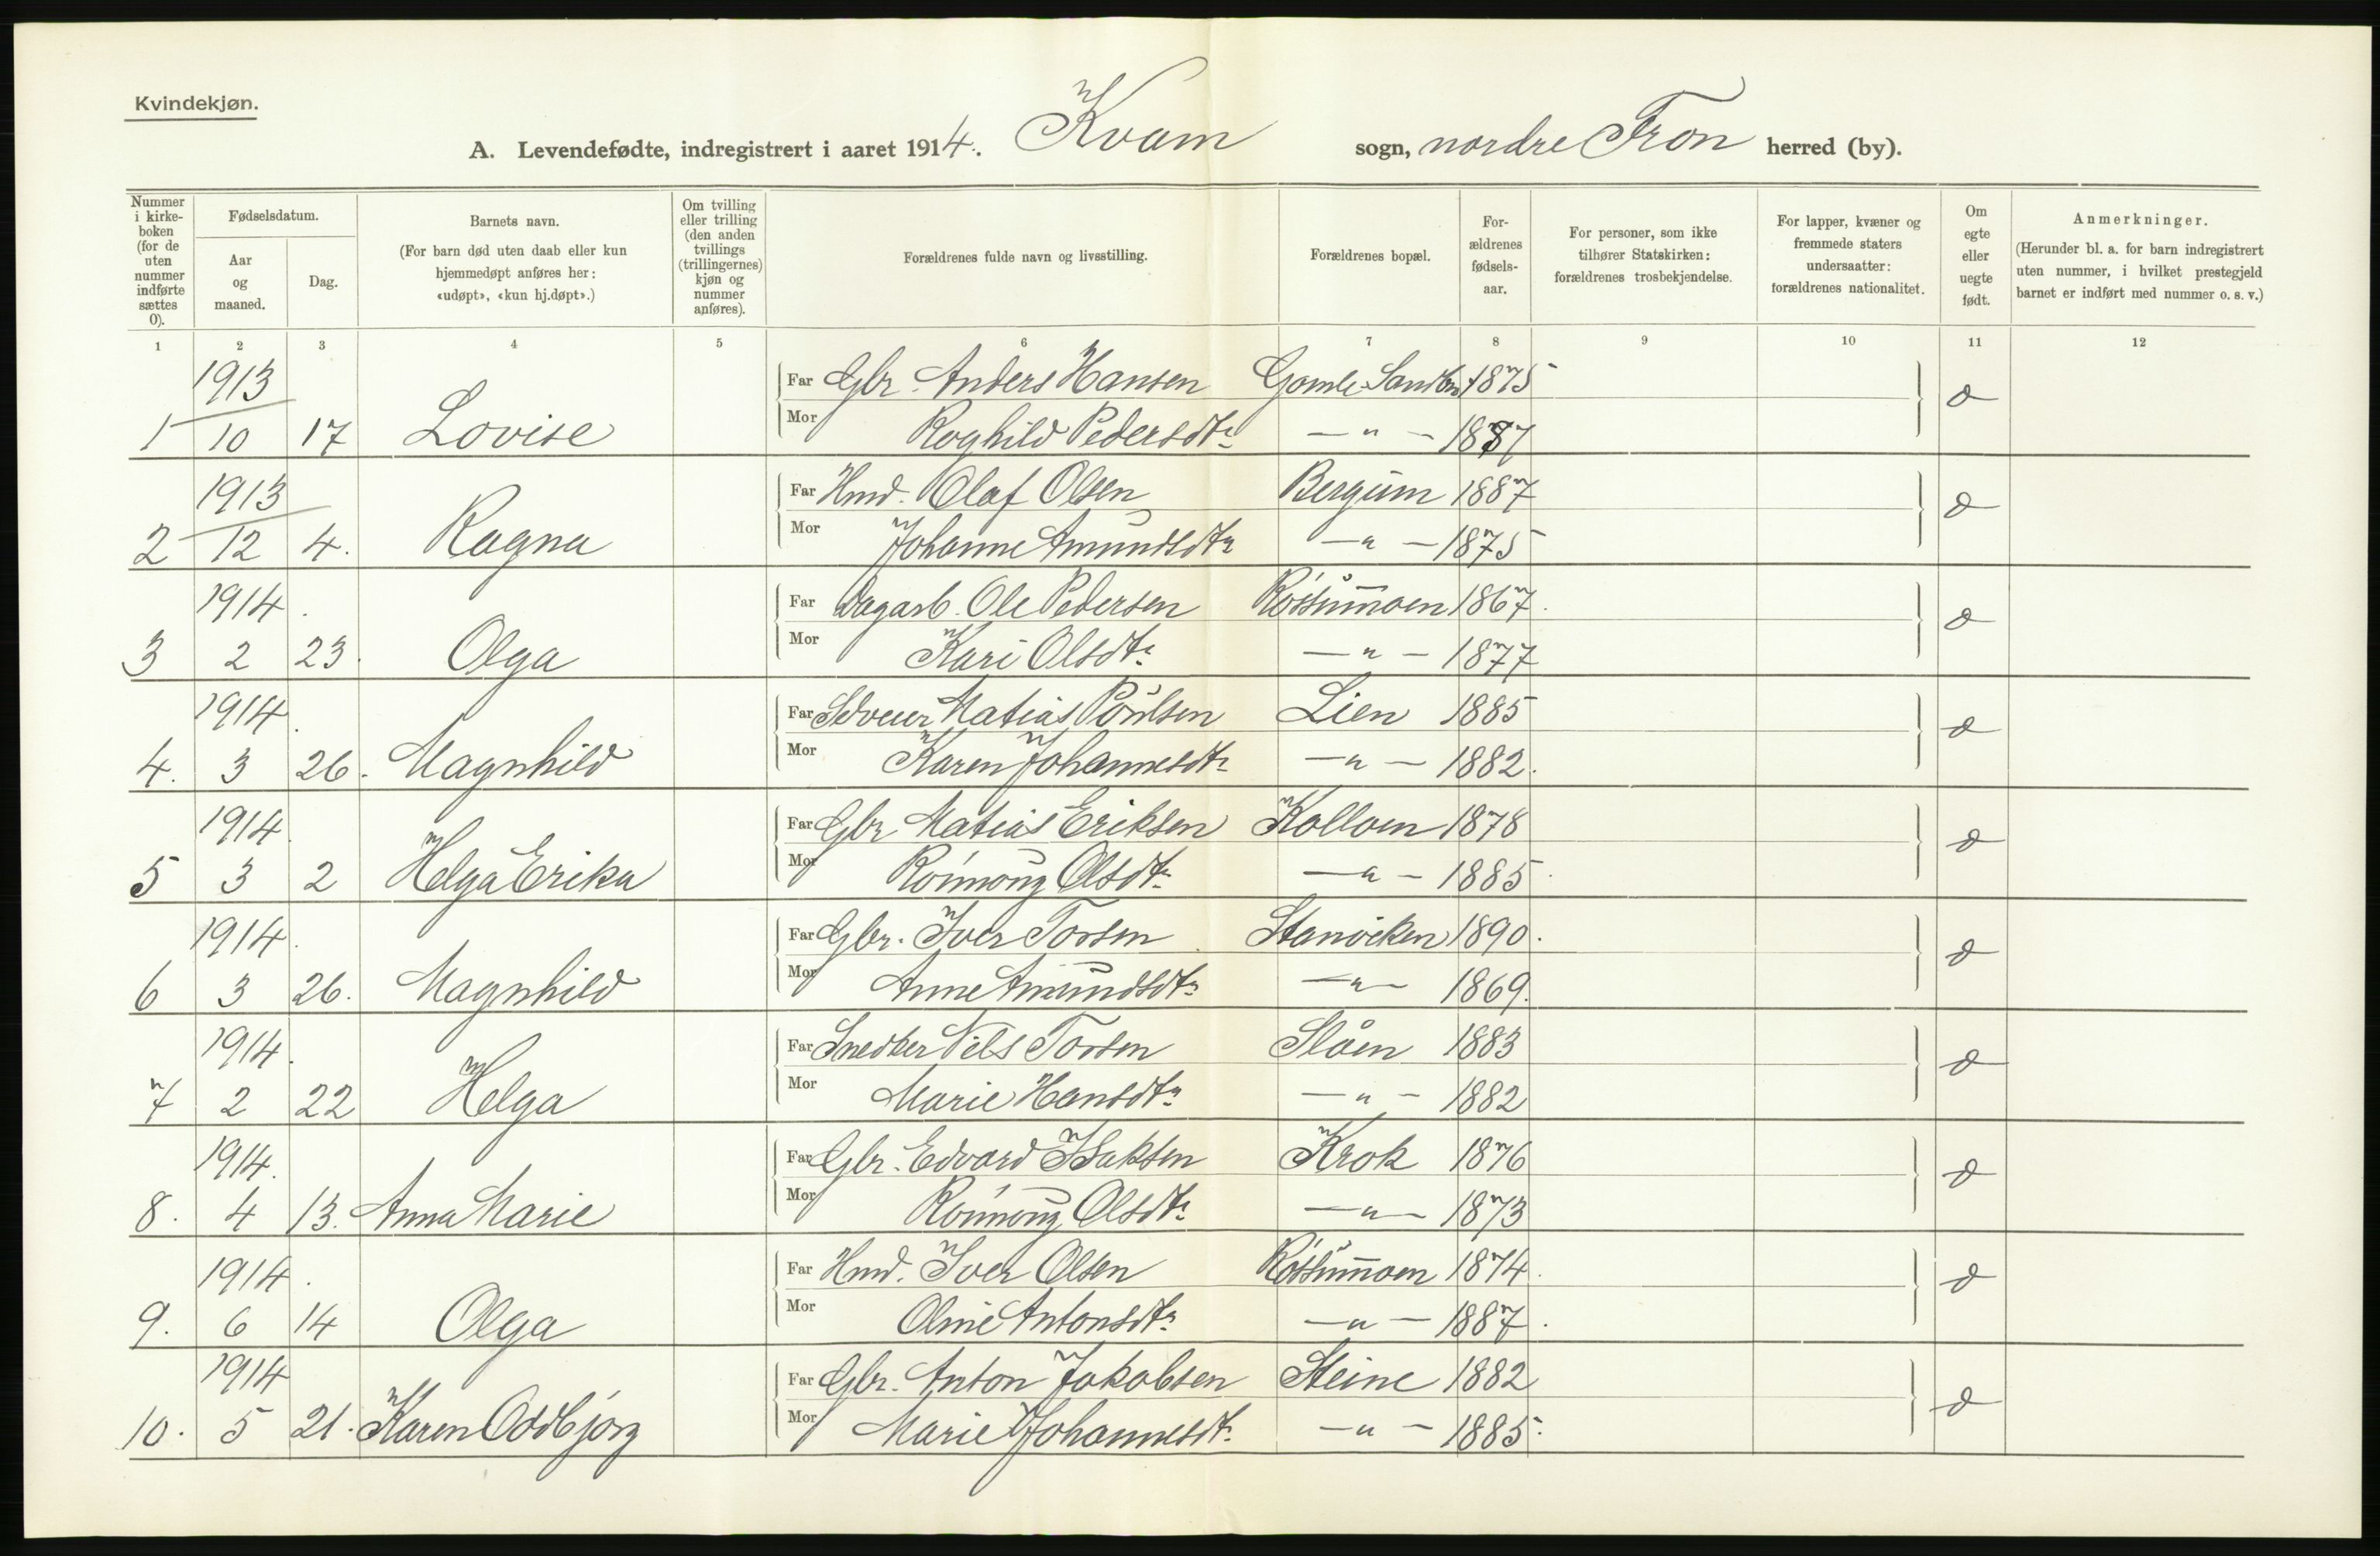 Kvindekjøn.
A. Levendefødte, indregistrert i aaret 1914. Kvam sogn, nordre Fron herred (by).
Nummer i kirke-boken (for de uten nummer indførte sættes 0).
Fødselsdatum.
Aar og maaned.
Dag.
Barnets navn.
(For barn død uten daab eller kun hjemmedøpt anføres her: «udøpt», «kun hj.døpt».)
Om tvilling eller trilling (den anden tvillings (trillingernes) kjøn og nummer anføres).
Forældrenes fulde navn og livsstilling.
Forældrenes bopæl.
For-ældrenes fødsels-aar.
For personer, som ikke tilhører Statskirken: forældrenes trosbekjendelse.
For lapper, kvæner og fremmede staters undersaatter: forældrenes nationalitet.
Om egte eller uegte født.
Anmerkninger.
(Herunder bl. a. for barn indregistrert uten nummer, i hvilket prestegjeld barnet er indført med nummer o. s. v.)
1 2 3 4 5 6 7 8 9 10 11 12
1913 Far Gbr. Anders Hansen Gamle 1875
1 10 17 Lovise Mor Roghild Pedersdtr. —"— 1887
1913 Far Hmd. Olaf Olsen Bergum 1887
2 12 4. Ragna Mor Johanne Amundsdtr —"— 1875
1914. Far Dagarb. Ole Pedersen Rossummoen 1867.
3 2 23. Olga Mor Kari Olsdtr. —"— 1877
1914. Far Matias Poulsen Lien 1885
4. 3 26. Magnhild Mor Karen Johannesdtr. —"— 1882.
1914. Far Gbr. Matias Eriksen Kolloen 1878
5 3 2 Helga Erika Mor Rønnoug Olsdtr. —"— 1885.
1914. Far Gbr. Iver Torsen 1890.
6 3 26. Magnhild Mor Anne Amundsdtr. —"— 1869.
1914. Far Snedker Nils Torsen Slåen 1883
7 2 22 Helga Mor Marie Hansdtr. —"— 1882
1914. Far Gbr. Edvard Isaksen Krok 1876
8. 4 13. Anna Marie Mor Rønnoug Olsdtr. —"— 1873
1914. Far Hmd. Iver Olsen Rossummoen 1874.
9. 6 14 Olga Mor Oline Antonsdtr. —"— 1887.
1914 Far Gbr. Anton Jakobsen Steine 1882
10. 5 21. Karen Oddbjørg Mor Marie Johannesdtr. —"— 1885.